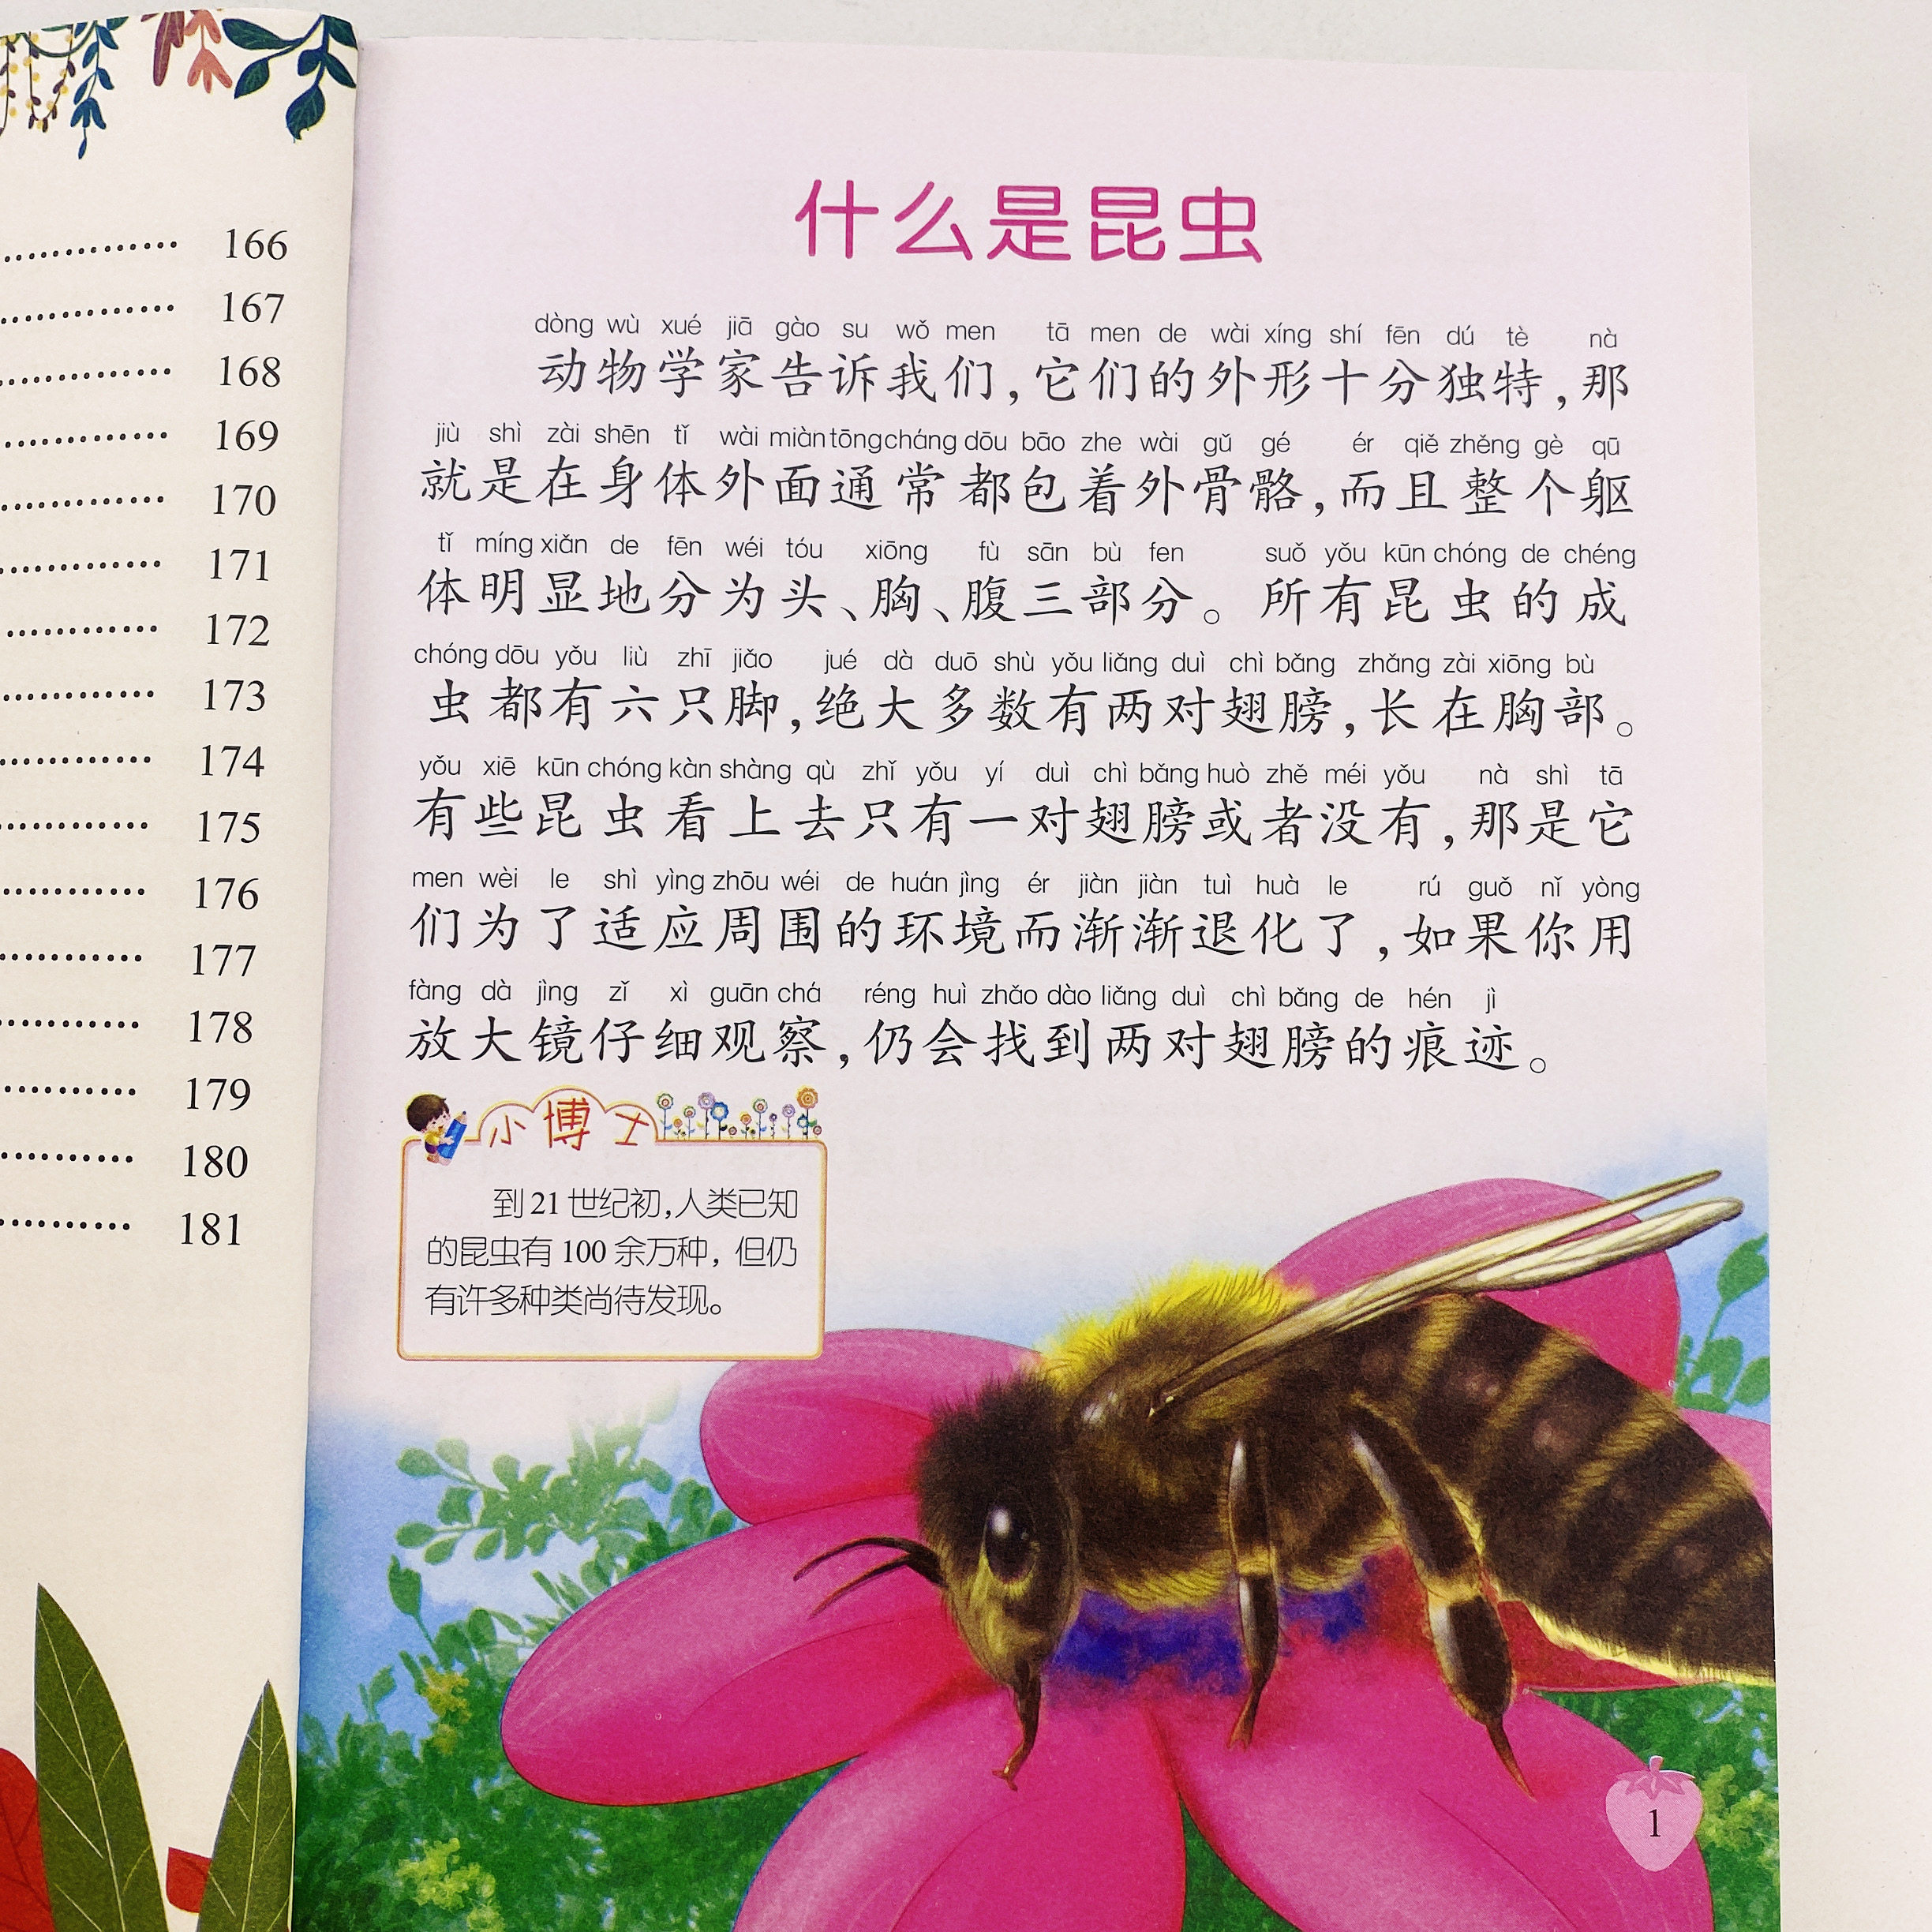 166
167
168
169
170
171
172
173
174
175
176
177
178
179
180
181
什么是昆虫
dòng wù xué jiā gào su wǒ men tā men de wài xíng shí fēn dú tè nà
动物学家告诉我们,它们的外形十分独特,那
jiù shì zài shēn tǐ wài miàn tōng cháng dōu bāo zhe wài gǔ gé ér qiě zhěng gè qū
就是在身体外面通常都包着外骨骼,而且整个躯
tǐ míng xiǎn de fēn wéi tóu xiōng fù sān bù fen suǒ yǒu kūn chóng de chéng
体明显地分为头、胸、腹三部分。所有昆虫的成
chóng dōu yǒu liù zhī jiǎo jué dà duō shù yǒu liǎng duì chì bǎng zhǎng zài xiōng bù
虫都有六只脚,绝大多数有两对翅膀,长在胸部。
yǒu xiē kūn chóng kàn shàng qù zhǐ yǒu yí duì chì bǎng huò zhě méi yǒu nà shì tā
有些昆虫看上去只有一对翅膀或者没有,那是它
men wèi le shì yìng zhōu wéi de huán jìng ér jiàn jiàn tuì huà le rú guǒ nǐ yòng
们为了适应周围的环境而渐渐退化了,如果你用
fàng dà jìng zǐ xì guān chá réng huì zhǎo dào liǎng duì chì bǎng de hén jì
放大镜仔细观察,仍会找到两对翅膀的痕迹。
小博士
到21世纪初,人类已知
的昆虫有100余万种,但仍
有许多种类尚待发现。
1